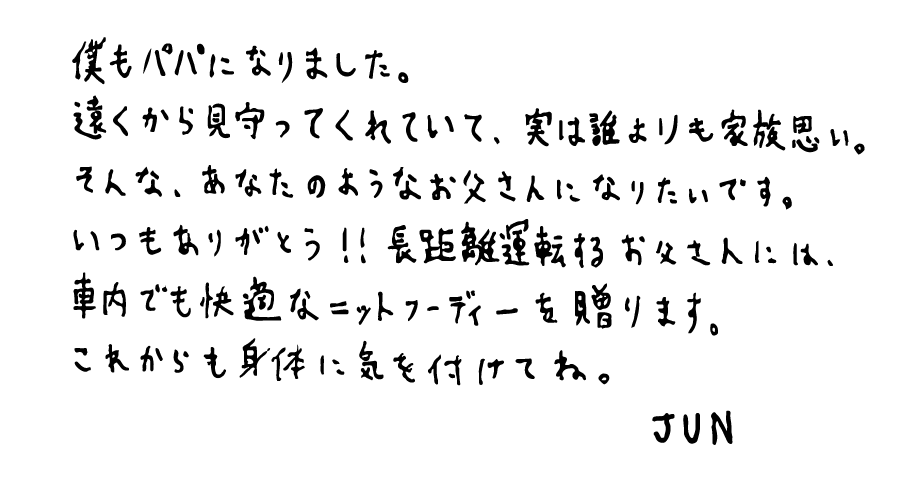 僕もパパになりました。
遠くから見守ってくれていて、実は誰よりも家族思い。
そんな、あなたのようなお父さんになりたいです。
いつもありがとう!!長距離運転するお父さんには、
車内でも快適なニットフーディーを贈ります。
これからも身体に気を付けてね。
JUN